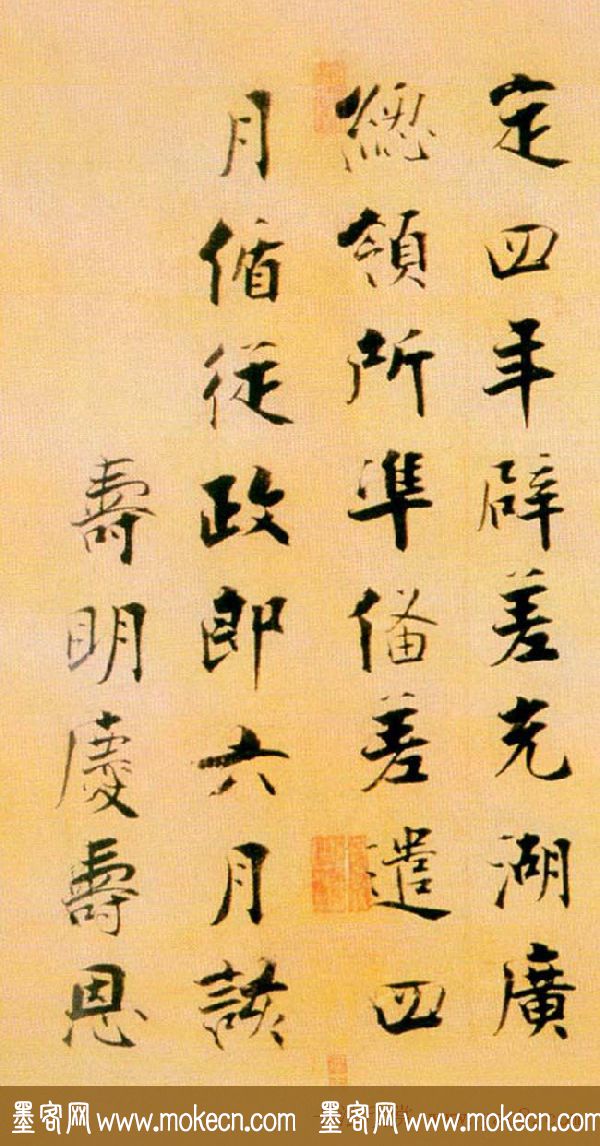 定四年辟差充湖廣
總領所準俻差遣四
月循從政郎六月該
壽明慶壽恩
墨客网 www.mokecn.com 墨客网 www.mokecn.com